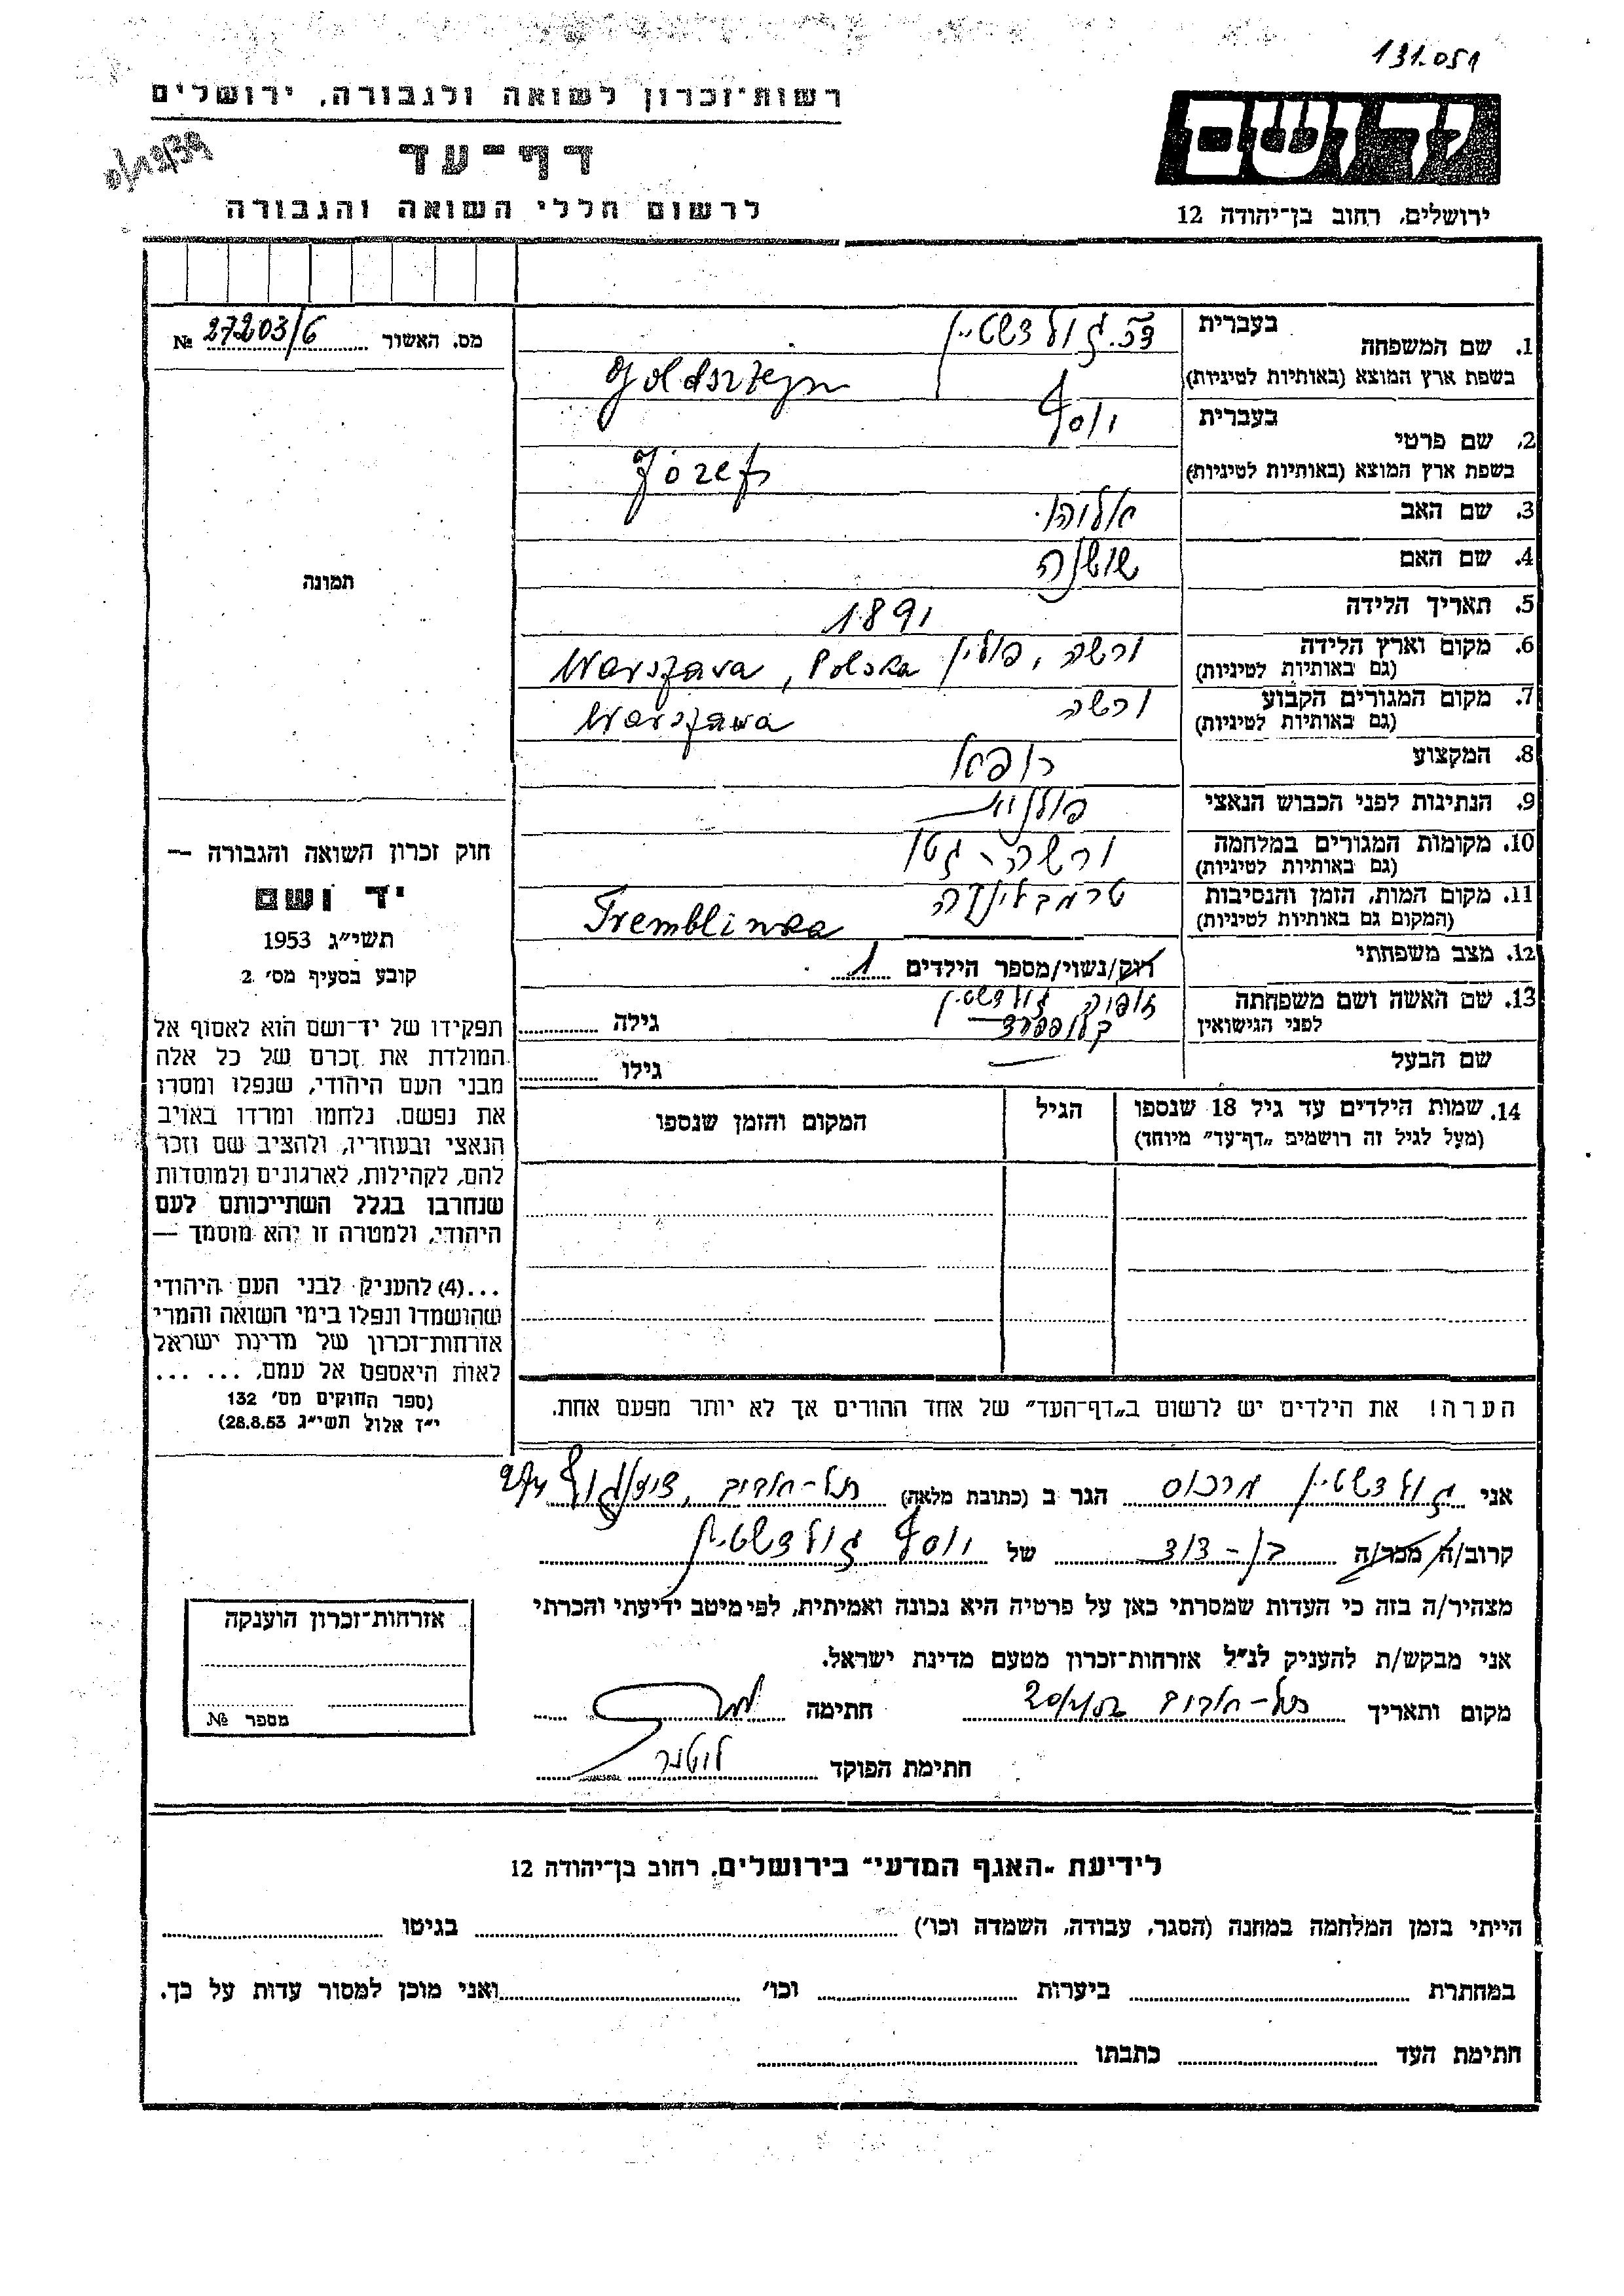 131.051
רשות־זכרון לשואה ולגבורה, ירושלים
דף־עד
לרשום חללי השואה והגבורה
יד ושם
ירושלים, רחוב בן־יהודה 12
מס. האשור 27203/6 №
תמונה
1. שם המשפחה
בעברית גולדשטיין
בשפת ארץ המוצא (באותיות לטיניות) Goldsztejn
2. שם פרטי
בעברית יוסף
בשפת ארץ המוצא (באותיות לטיניות) Józef
3. שם האב אליהו
4. שם האם שושנה
5. תאריך הלידה 1891
6. מקום וארץ הלידה ורשה, פולין Warszawa, Polska
(גם באותיות לטיניות)
7. מקום המגורים הקבוע ורשה Warszawa
(גם באותיות לטיניות)
8. המקצוע רופא
9. הנתינות לפני הכבוש הנאצי פולנית
10. מקומות המגורים במלחמה ורשה - גטו
(גם באותיות לטיניות)
11. מקום המות, הזמן והנסיבות טרמבלינקה Tremblinka
(המקום גם באותיות לטיניות)
12. מצב משפחתי רוק/נשוי/מספר הילדים 1
13. שם האשה ושם משפחתה גולדשטיין
לפני הנישואין גילה
שם הבעל — גילו
14. שמות הילדים עד גיל 18 שנספו הגיל המקום והזמן שנספו
(מעל לגיל זה רושמים „דף־עד” מיוחד)
הערה! את הילדים יש לרשום ב„דף־העד” של אחד ההורים אך לא יותר מפעם אחת.
חוק זכרון השואה והגבורה —
יד ושם
תשי״ג 1953
קובע בסעיף מס׳ 2
תפקידו של יד־ושם הוא לאסוף אל
המולדת את זכרם של כל אלה
מבני העם היהודי, שנפלו ומסרו
את נפשם, נלחמו ומרדו באויב
הנאצי ובעוזריו, ולהציב שם וזכר
להם, לקהילות, לארגונים ולמוסדות
שנחרבו בגלל השתייכותם לעם
היהודי, ולמטרה זו יהא מוסמך —
...(4) להעניק לבני העם היהודי
שהושמדו ונפלו בימי השואה והמרי
אזרחות־זכרון של מדינת ישראל
לאות היאספם אל עמם, ... ...
(ספר החוקים מס׳ 132
י״ז אלול תשי״ג 28.8.53)
אני גולדשטיין מרכוס הגר ב (כתובת מלאה) תל-אביב,
קרוב/ה מכר/ה בן-דוד של יוסף גולדשטיין
מצהיר/ה בזה כי העדות שמסרתי כאן על פרטיה היא נכונה ואמיתית, לפי מיטב ידיעתי והכרתי
אני מבקש/ת להעניק לנ״ל אזרחות־זכרון מטעם מדינת ישראל.
מקום ותאריך תל-אביב חתימה
חתימת הפוקד
אזרחות־זכרון הוענקה
מספר №
לידיעת „האגף המדעי” בירושלים, רחוב בן־יהודה 12
הייתי בזמן המלחמה במחנה (הסגר, עבודה, השמדה וכו׳) בגיטו
במחתרת ביערות וכו׳ ואני מוכן למסור עדות על כך.
חתימת העד כתבתו